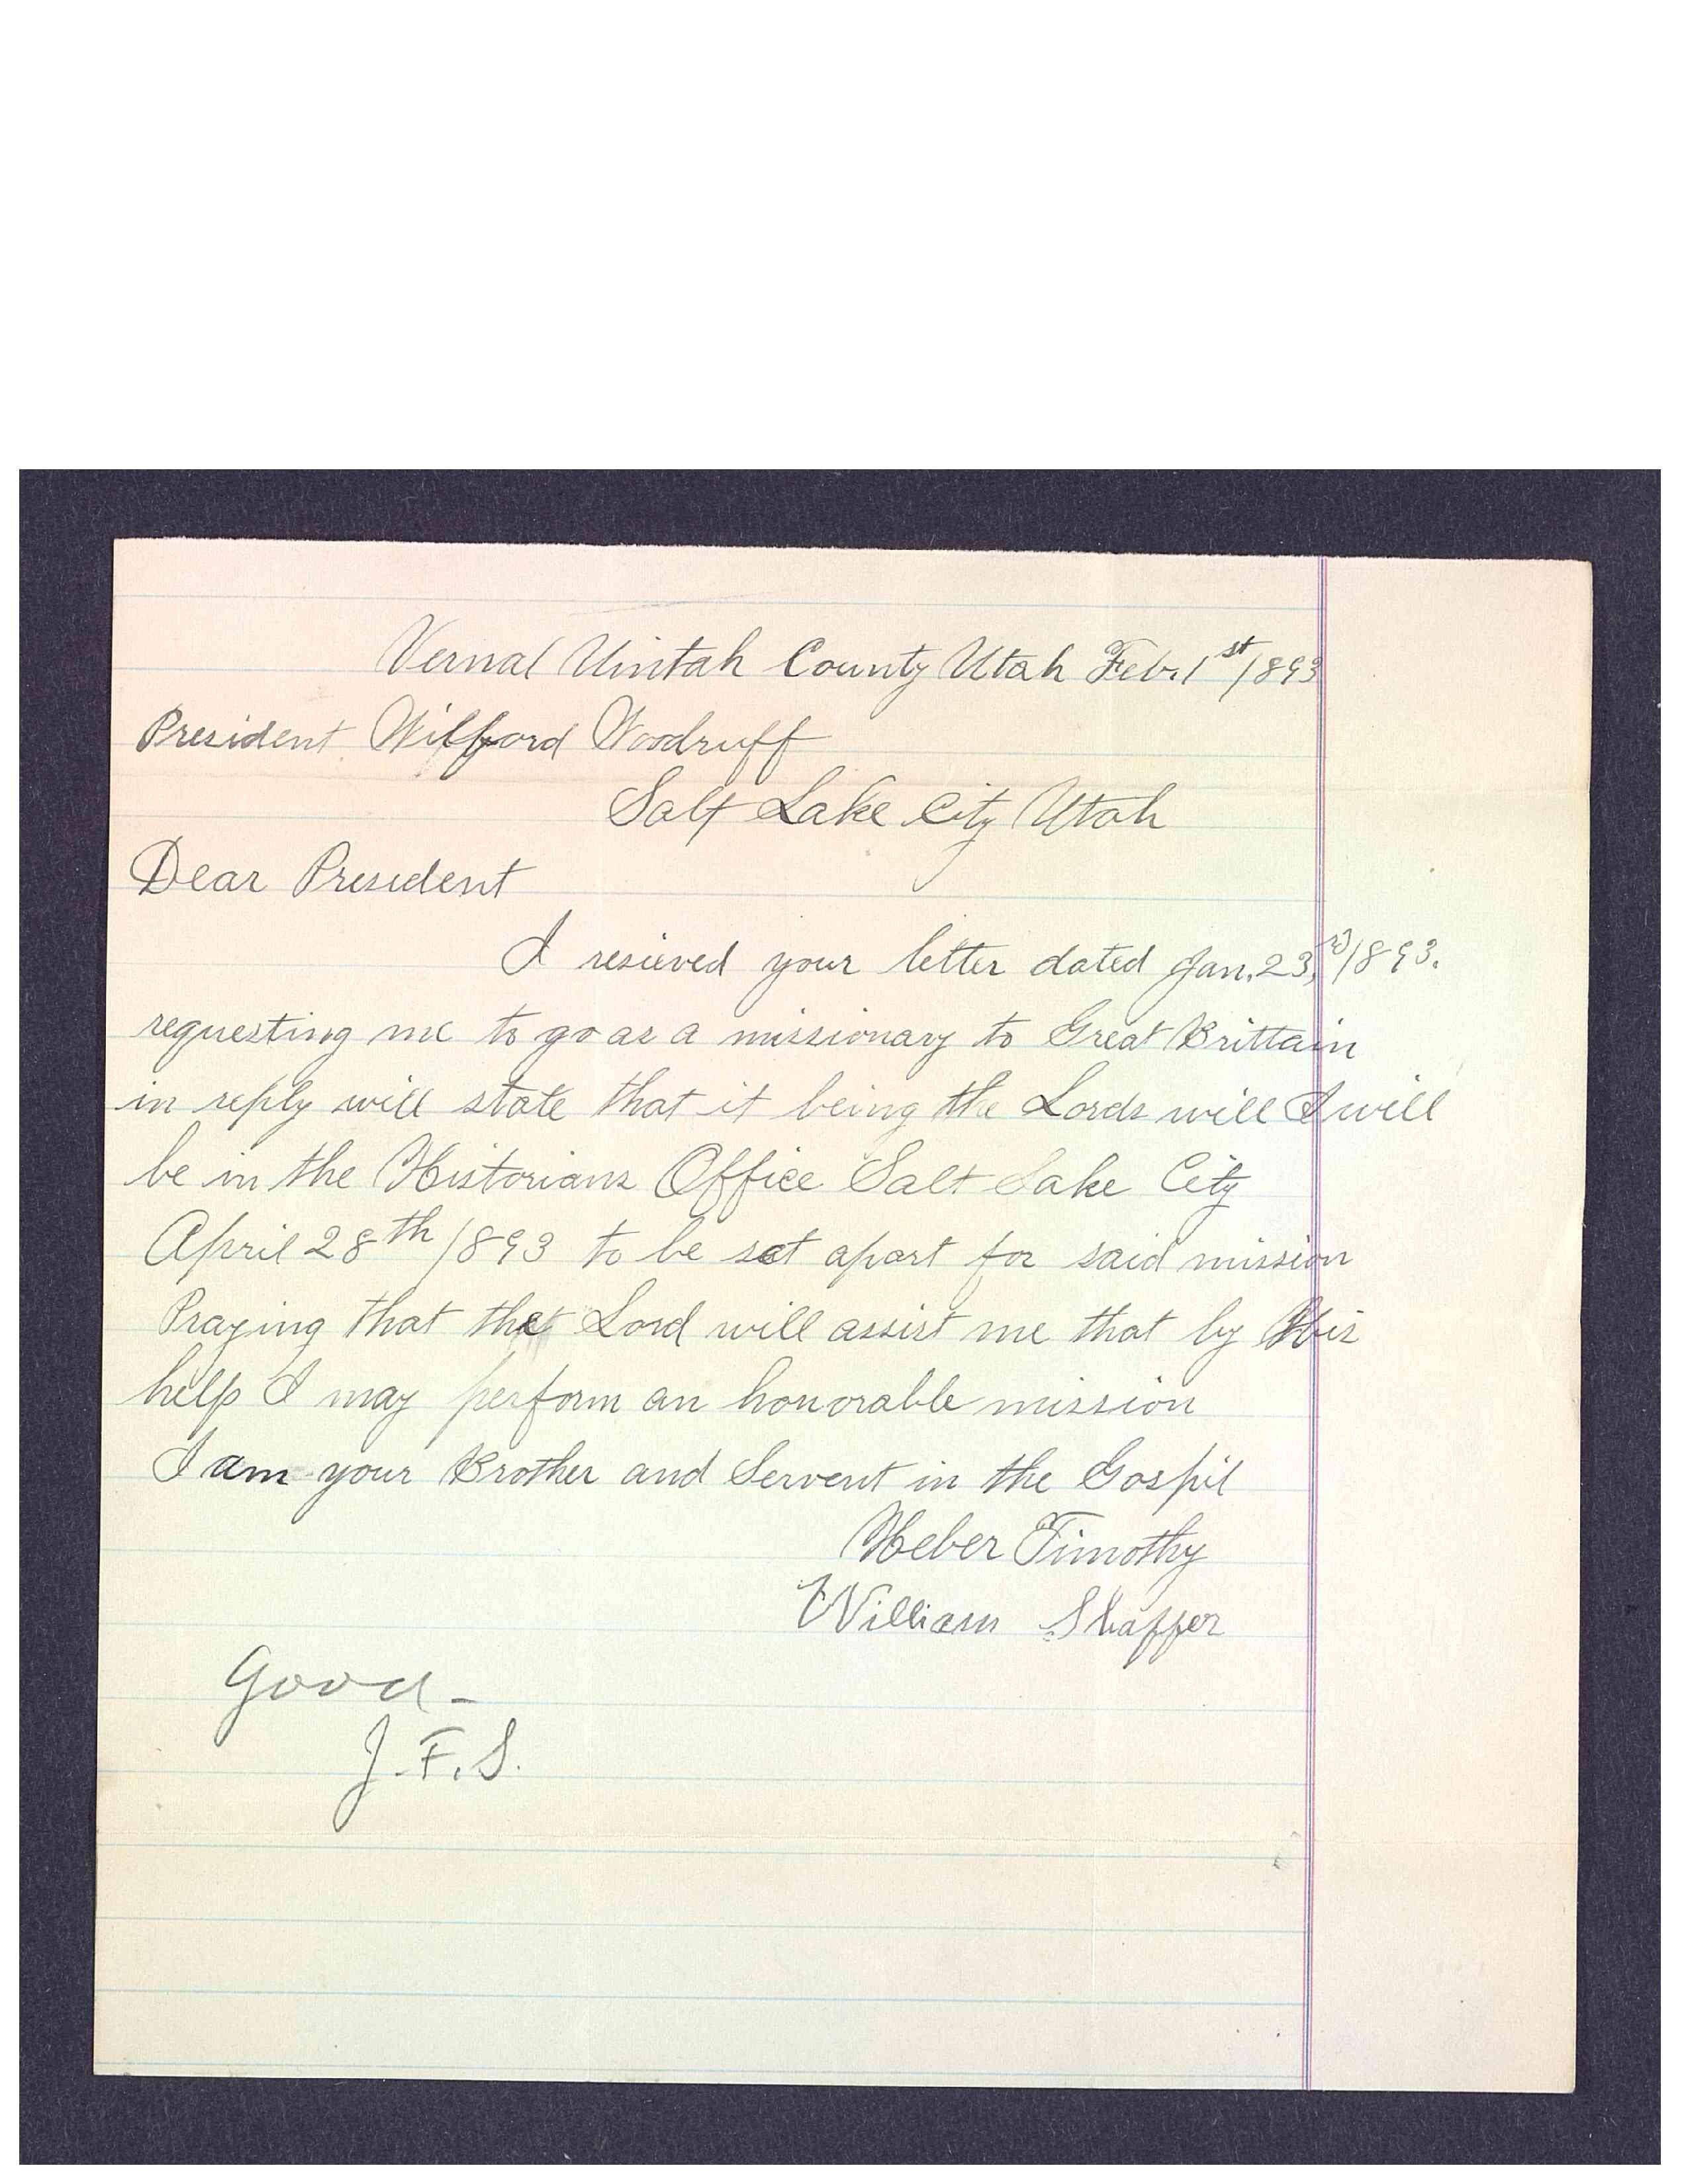 Vernal Uintah County Utah Feb. 1st/1893
President Wilford Woodruff
Salt Lake City Utah
Dear President
I resieved your letter dated Jan. 23,rd/1893.
requesting me to go as a missionary to Great Brittain
in reply will state that it being the Lords will I will
be in the Historians Office Salt Lake City
April 28th 1893 to be set apart for said mission
Praying that the Lord will assist me that by His
help I may perform an honorable mission
I am your Brother and Servent in the Gospil
Heber Timothy
William Shaffer
Good-
J.F.S.